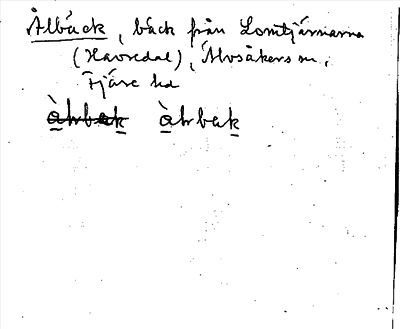 Ålbäck, bäck från Lomtjärnarna
(Havredal), Älvsåkers sn.
Fjäre hd
àhbak àhbak